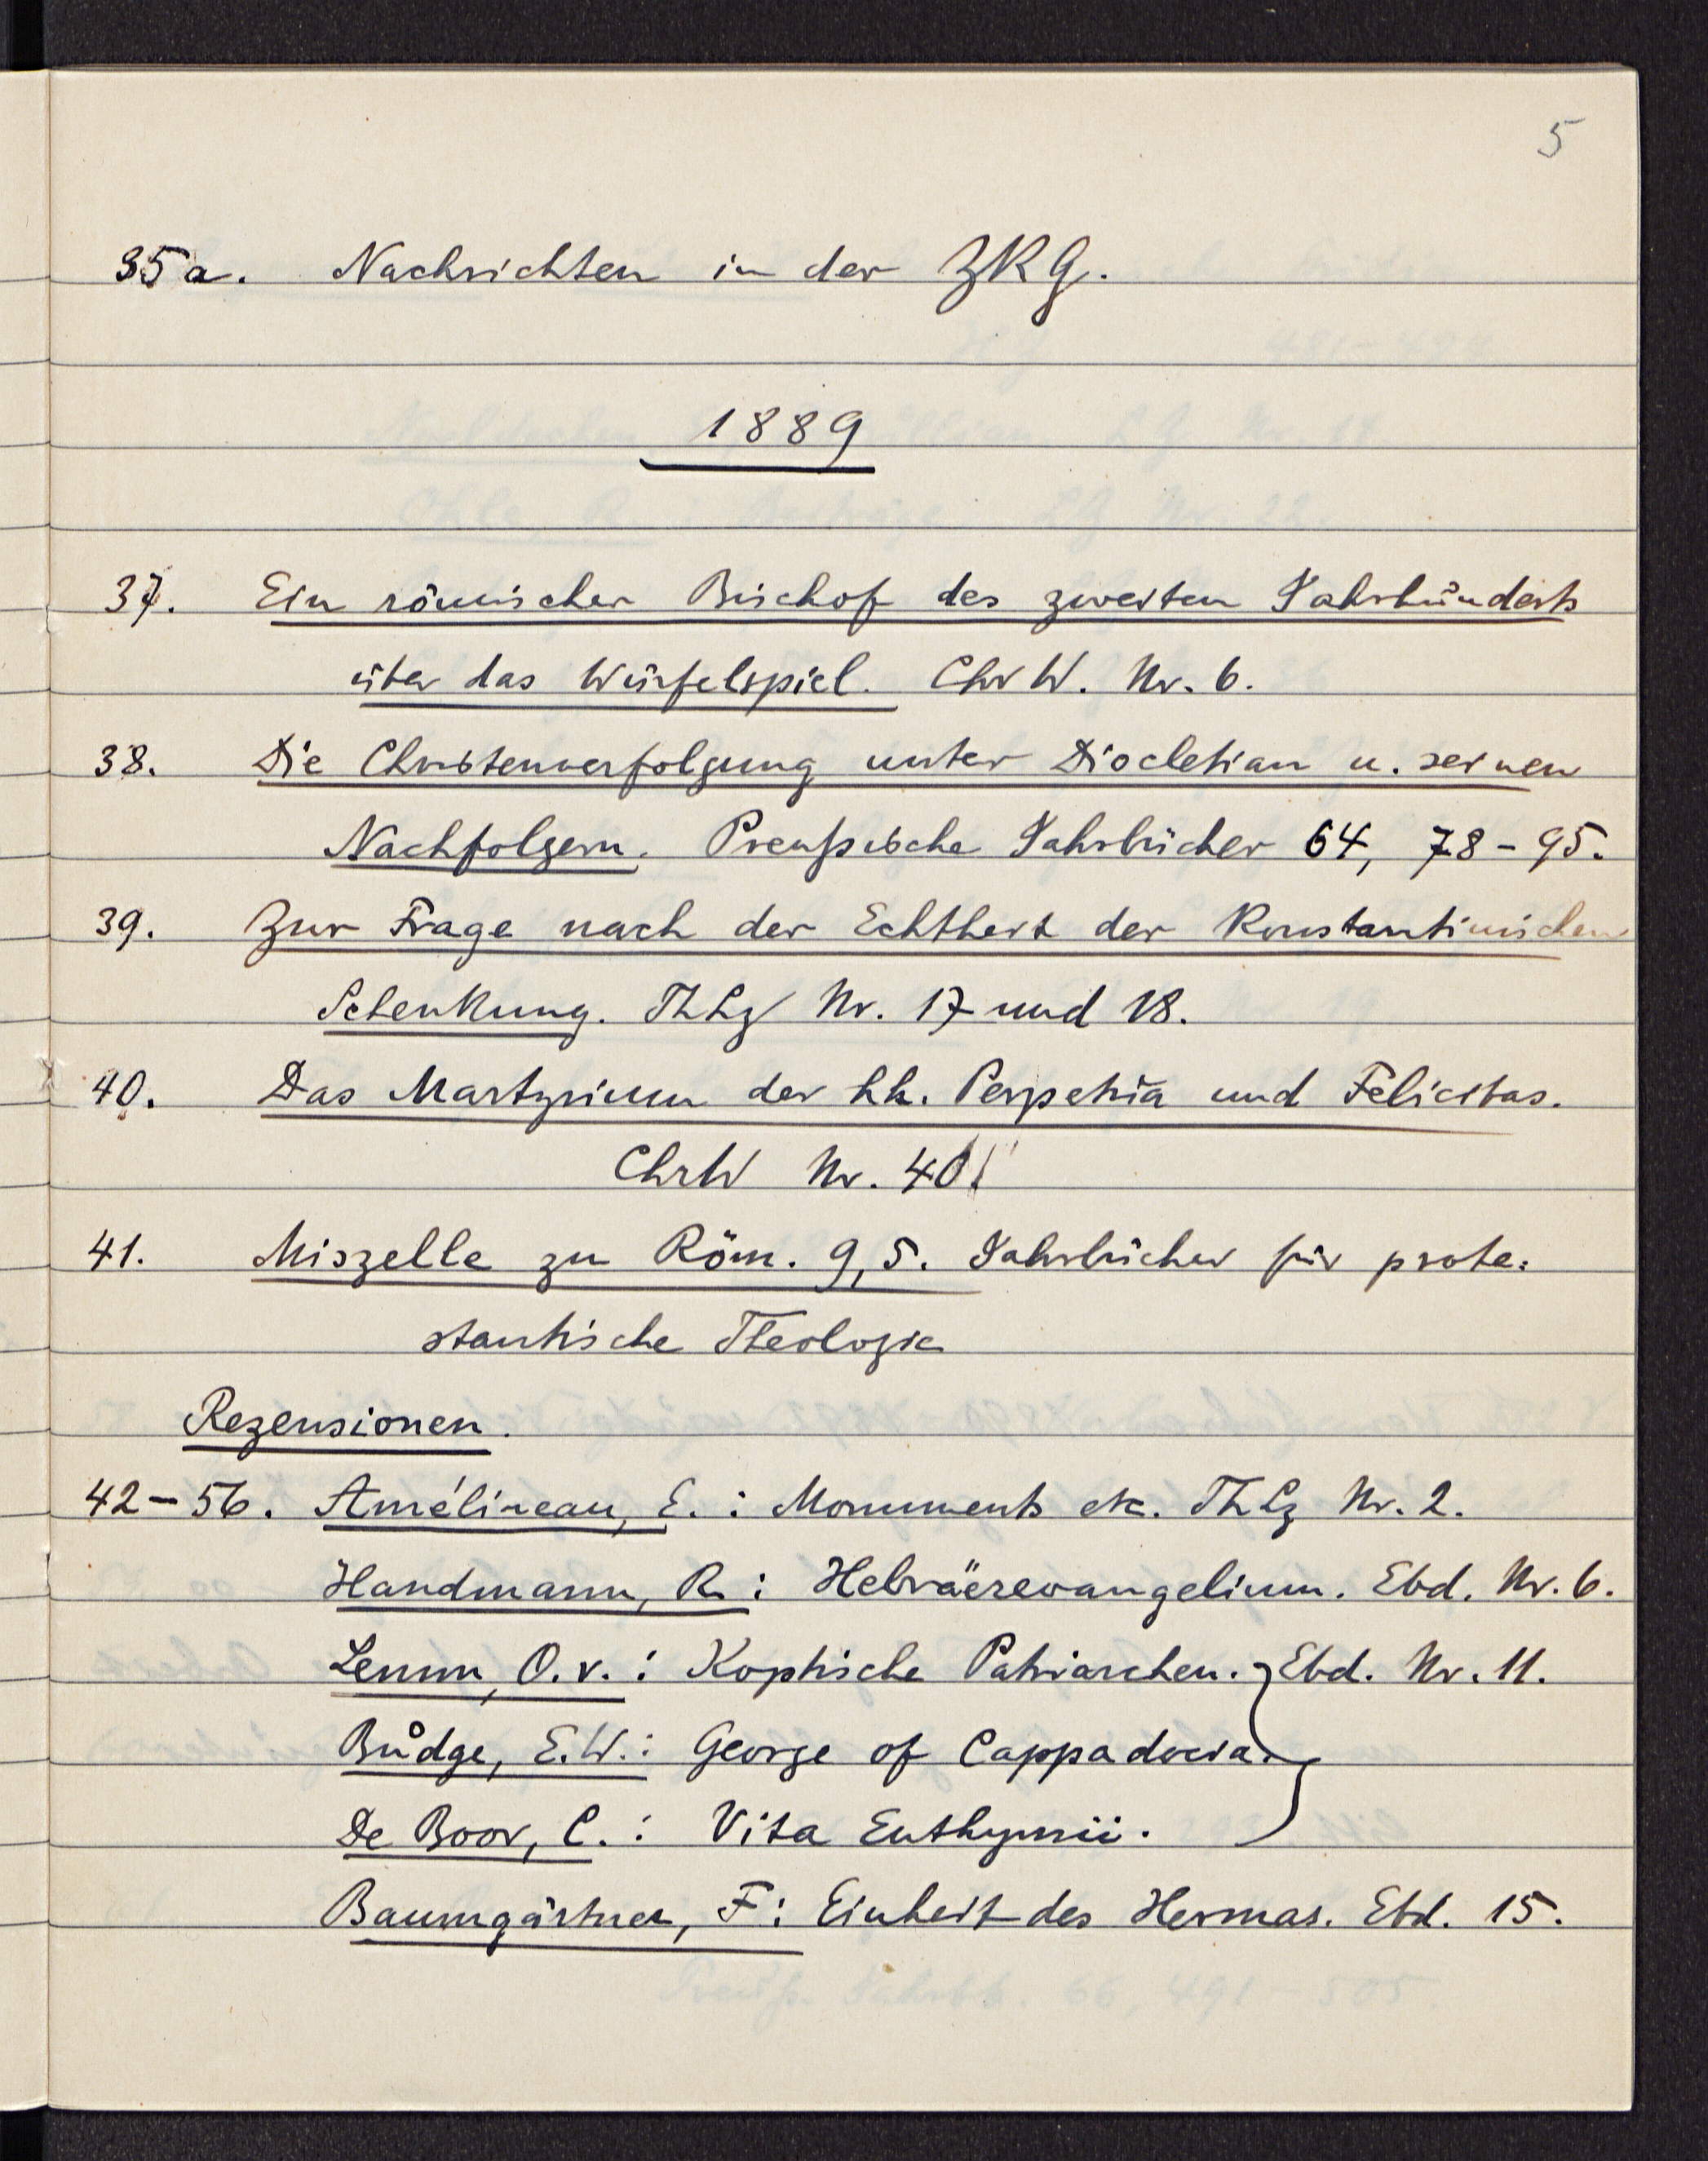 5
35a. Nachrichten in der ZKG.
1889
37. Ein römischer Bischof des zweiten Jahrhunderts
über das Würfelspiel. ChrW. Nr. 6.
38. Die Christenverfolgung unter Diocletian u. seinen
Nachfolgern. Preußische Jahrbücher 64, 78-95.
39. Zur Frage nach der Echtheit der Konstantinischen
Schenkung. ThLz Nr. 17 und 18.
40. Das Martyrium der hh. Perpetua und Felicitas.
ChrW Nr. 40.
41. Miszelle zu Röm. 9,5. Jahrbücher für prote=
stantische Theologie
Rezensionen.
42-56. Amélineau, E.: Monuments etc. ThLz Nr. 2.
Handmann, R.: Hebräerevangelium. Ebd. Nr. 6.
Lemm, O.v.: Koptische Patriarchen. Ebd. Nr. 11.
Budge, E.W.: George of Cappadocia.
De Boor, C.: Vita Euthymii.
Baumgärtner, F: Einheit des Hermas. Ebd. 15.